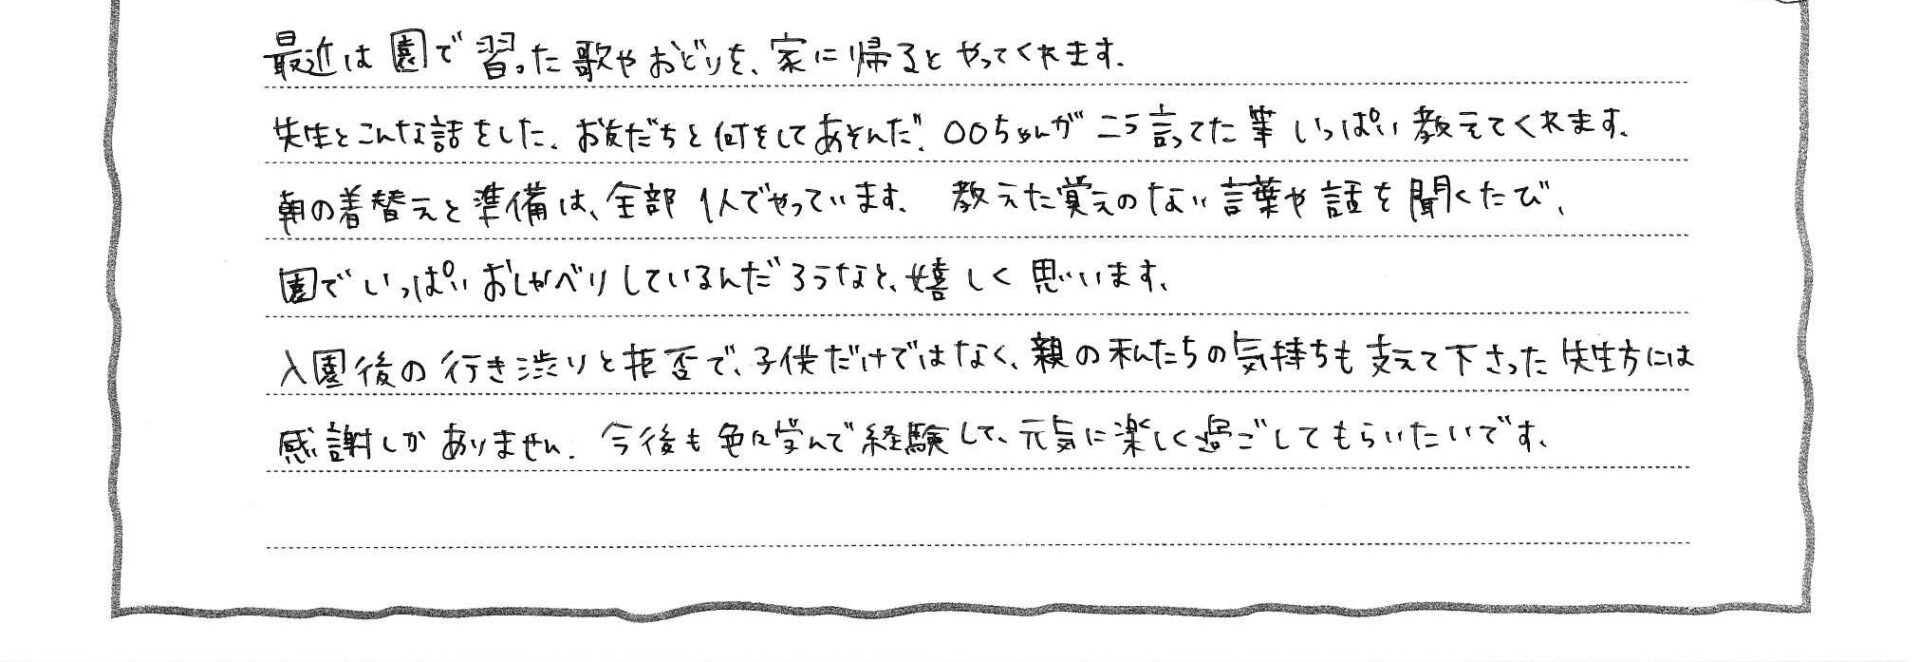 最近は園で習った歌やおどりを、家に帰るとやってくれます。
先生とこんな話をした、お友だちと何をしてあそんだ、〇〇ちゃんがこう言ってた等いっぱい教えてくれます。
朝の着替えと準備は、全部1人でやっています。教えた覚えのない言葉や話を聞くたび、
園でいっぱいおしゃべりしているんだろうなと、嬉しく思います。
入園後の行き渋りと拒否で、子供だけではなく、親の私たちの気持ちも支えて下さった先生方には
感謝しかありません。今後も色々学んで経験して、元気に楽しく過ごしてもらいたいです。